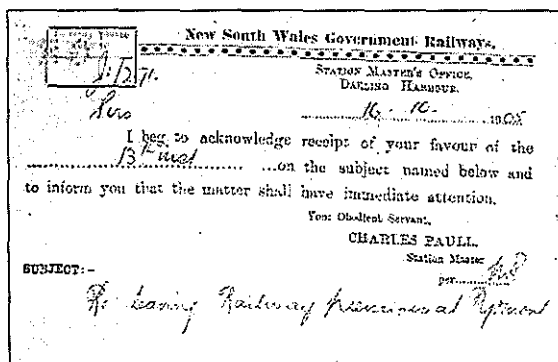 New South Wales Government Railways.
STATION MASTER'S OFFICE,
DARLING HARBOUR.
16 . 10 . 1905
Sirs
I beg to acknowledge receipt of your favour of the
13th inst ...on the subject named below and
to inform you that the matter shall have immediate attention.
Your Obedient Servant,
CHARLES PAULL,
Station Master
per
SUBJECT:-
Re Railway premises at Pyrmont